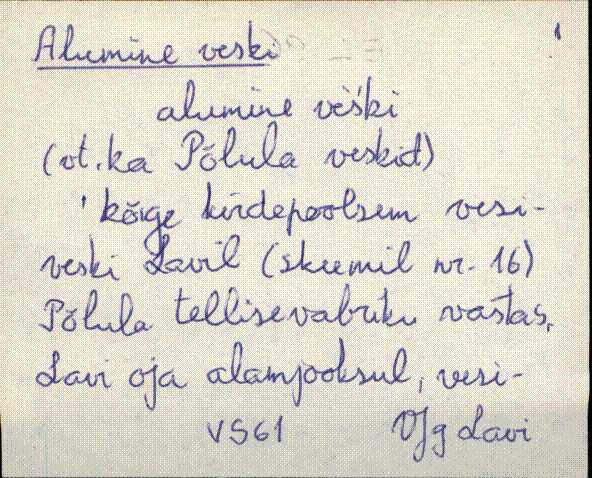 1
Alumine veski
alumine vèški
(vt. ka Põlula veskid)
'kõige kirdepoolsem vesi-
veski Lavil (skeemil nr. 16)
Põlula tellisevabriku vastas,
Lavi oja alamjooksul, vesi-
VS61 VJg Lavi